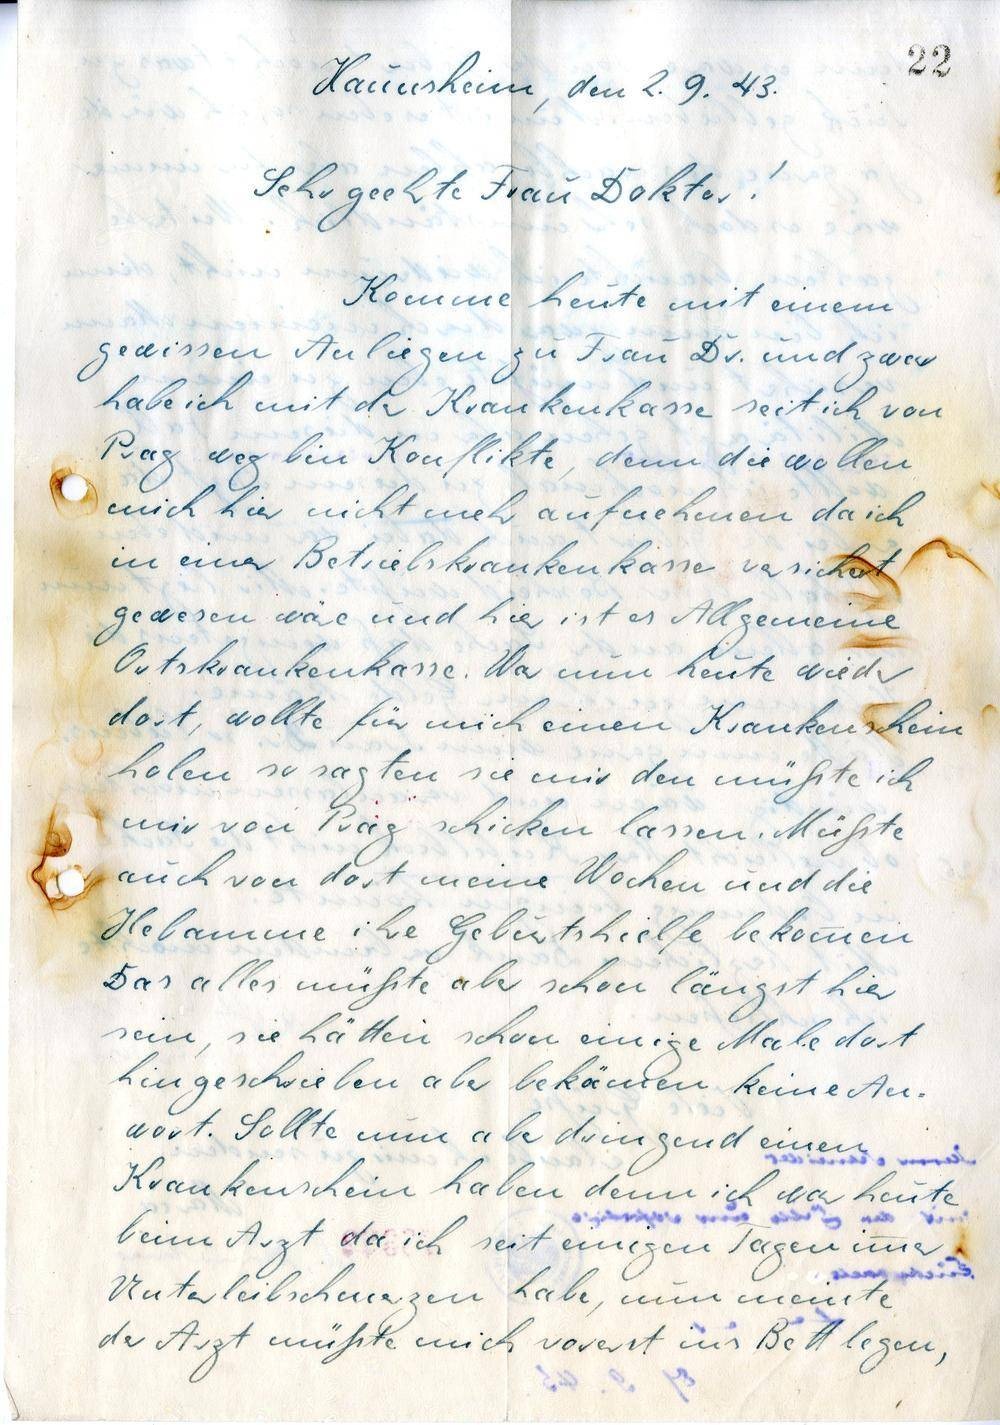 22
Haunsheim, den 2. 9. 43.
Sehr geehrte Frau Doktor!
Komme heute mit einem
gewissen Anliegen zu Frau Dr. und zwar
habe ich mit der Krankenkasse seit ich von
Prag weg bin Konflikte, denn die wollen
mich hier nicht mehr aufnehmen da ich
in einer Betriebskrankenkasse versichert
gewesen wäre und hier ist es Allgemeine
Ortskrankenkasse. War nun heute wieder
dort, wollte für mich einen Krankenschein
holen so sagten sie mir den müßte ich
mir von Prag schicken lassen. Müßte
auch von dort meine Wochen und die
Hebamme ihre Geburtshielfe bekom̅en
Das alles müßte aber schon längst hier
sein, sie hätten schon einige Male dort
hingeschrieben aber bekämen keine An-
wort. Sollte nun aber dringend einen
Krankenschein haben denn ich war heute
beim Arzt da ich seit einigen Tagen im̅er
Unterleibschmerzen habe, nun meinte
der Arzt müßte mich vorerst ins Bett legen,